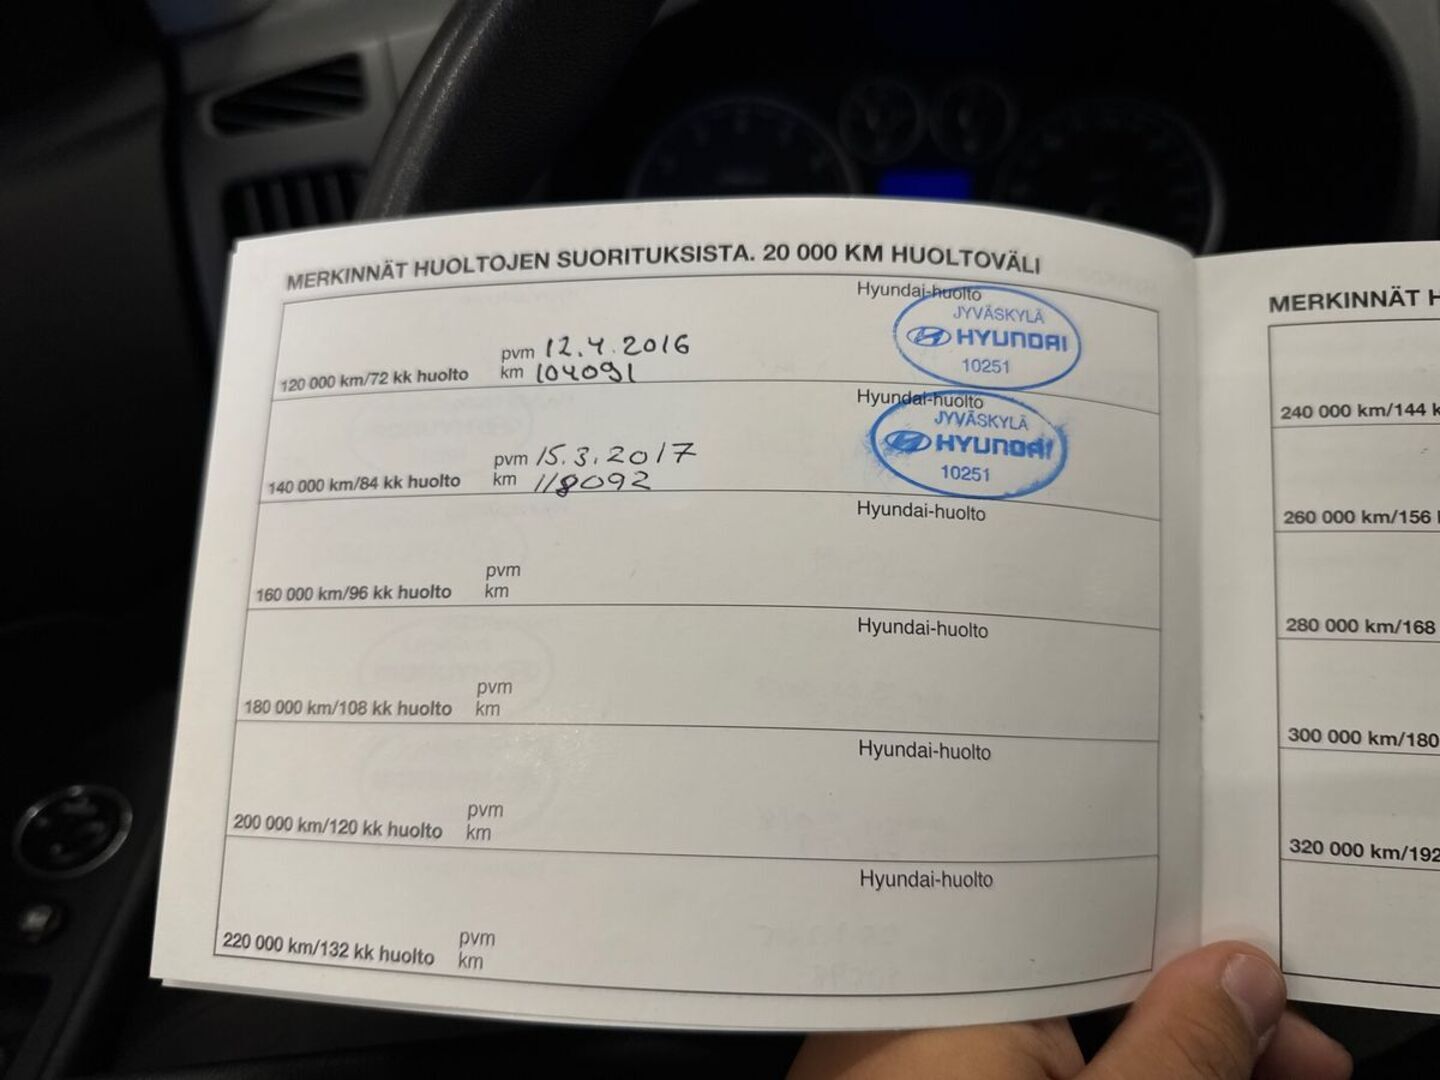 MERKINNÄT HUOLTOJEN SUORITUKSISTA. 20 000 KM HUOLTOVÄLI
Hyundai-huolto
JYVÄSKYLÄ
HYUNDAI
10251
pvm 12.4.2016
120 000 km/72 kk huolto km 104091
Hyundai-huolto
JYVÄSKYLÄ
HYUNDAI
10251
pvm 15.3.2017
140 000 km/84 kk huolto km 118092
Hyundai-huolto
pvm
160 000 km/96 kk huolto km
Hyundai-huolto
pvm
180 000 km/108 kk huolto km
Hyundai-huolto
pvm
200 000 km/120 kk huolto km
Hyundai-huolto
pvm
220 000 km/132 kk huolto km
MERKINNÄT
240 000 km/144
260 000 km/156
280 000 km/168
300 000 km/180
320 000 km/192